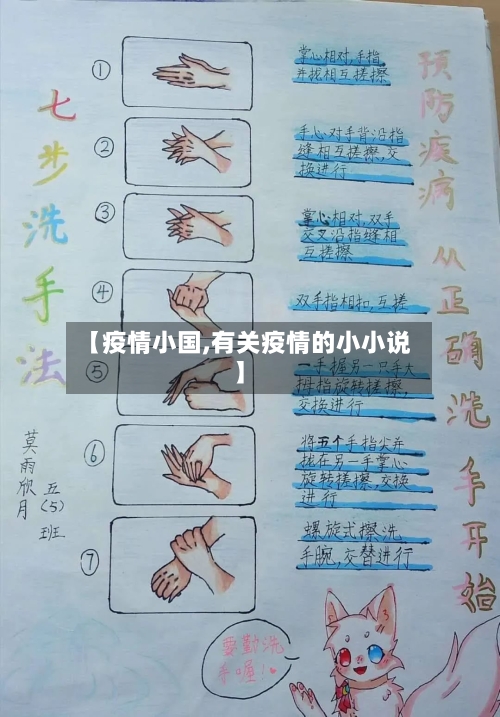 七步洗手法
莫雨欣月
五(5)班
①
掌心相对,手指
并拢相互搓擦
②
手心对手背沿指
缝相互搓擦,交
换进行
③
掌心相对,双手
交叉沿指缝相
互搓擦
④
双手指相扣,互搓
【疫情小国,有关疫情的小小说
】
⑤
一手握另一只手大
拇指旋转搓擦,
交换进行
⑥
将五个手指尖并
拢在另一手掌心
旋转搓擦,交换
进行
⑦
螺旋式擦洗
手腕,交替进行
预防疫病 从正确洗手开始
要勤洗
手喔!